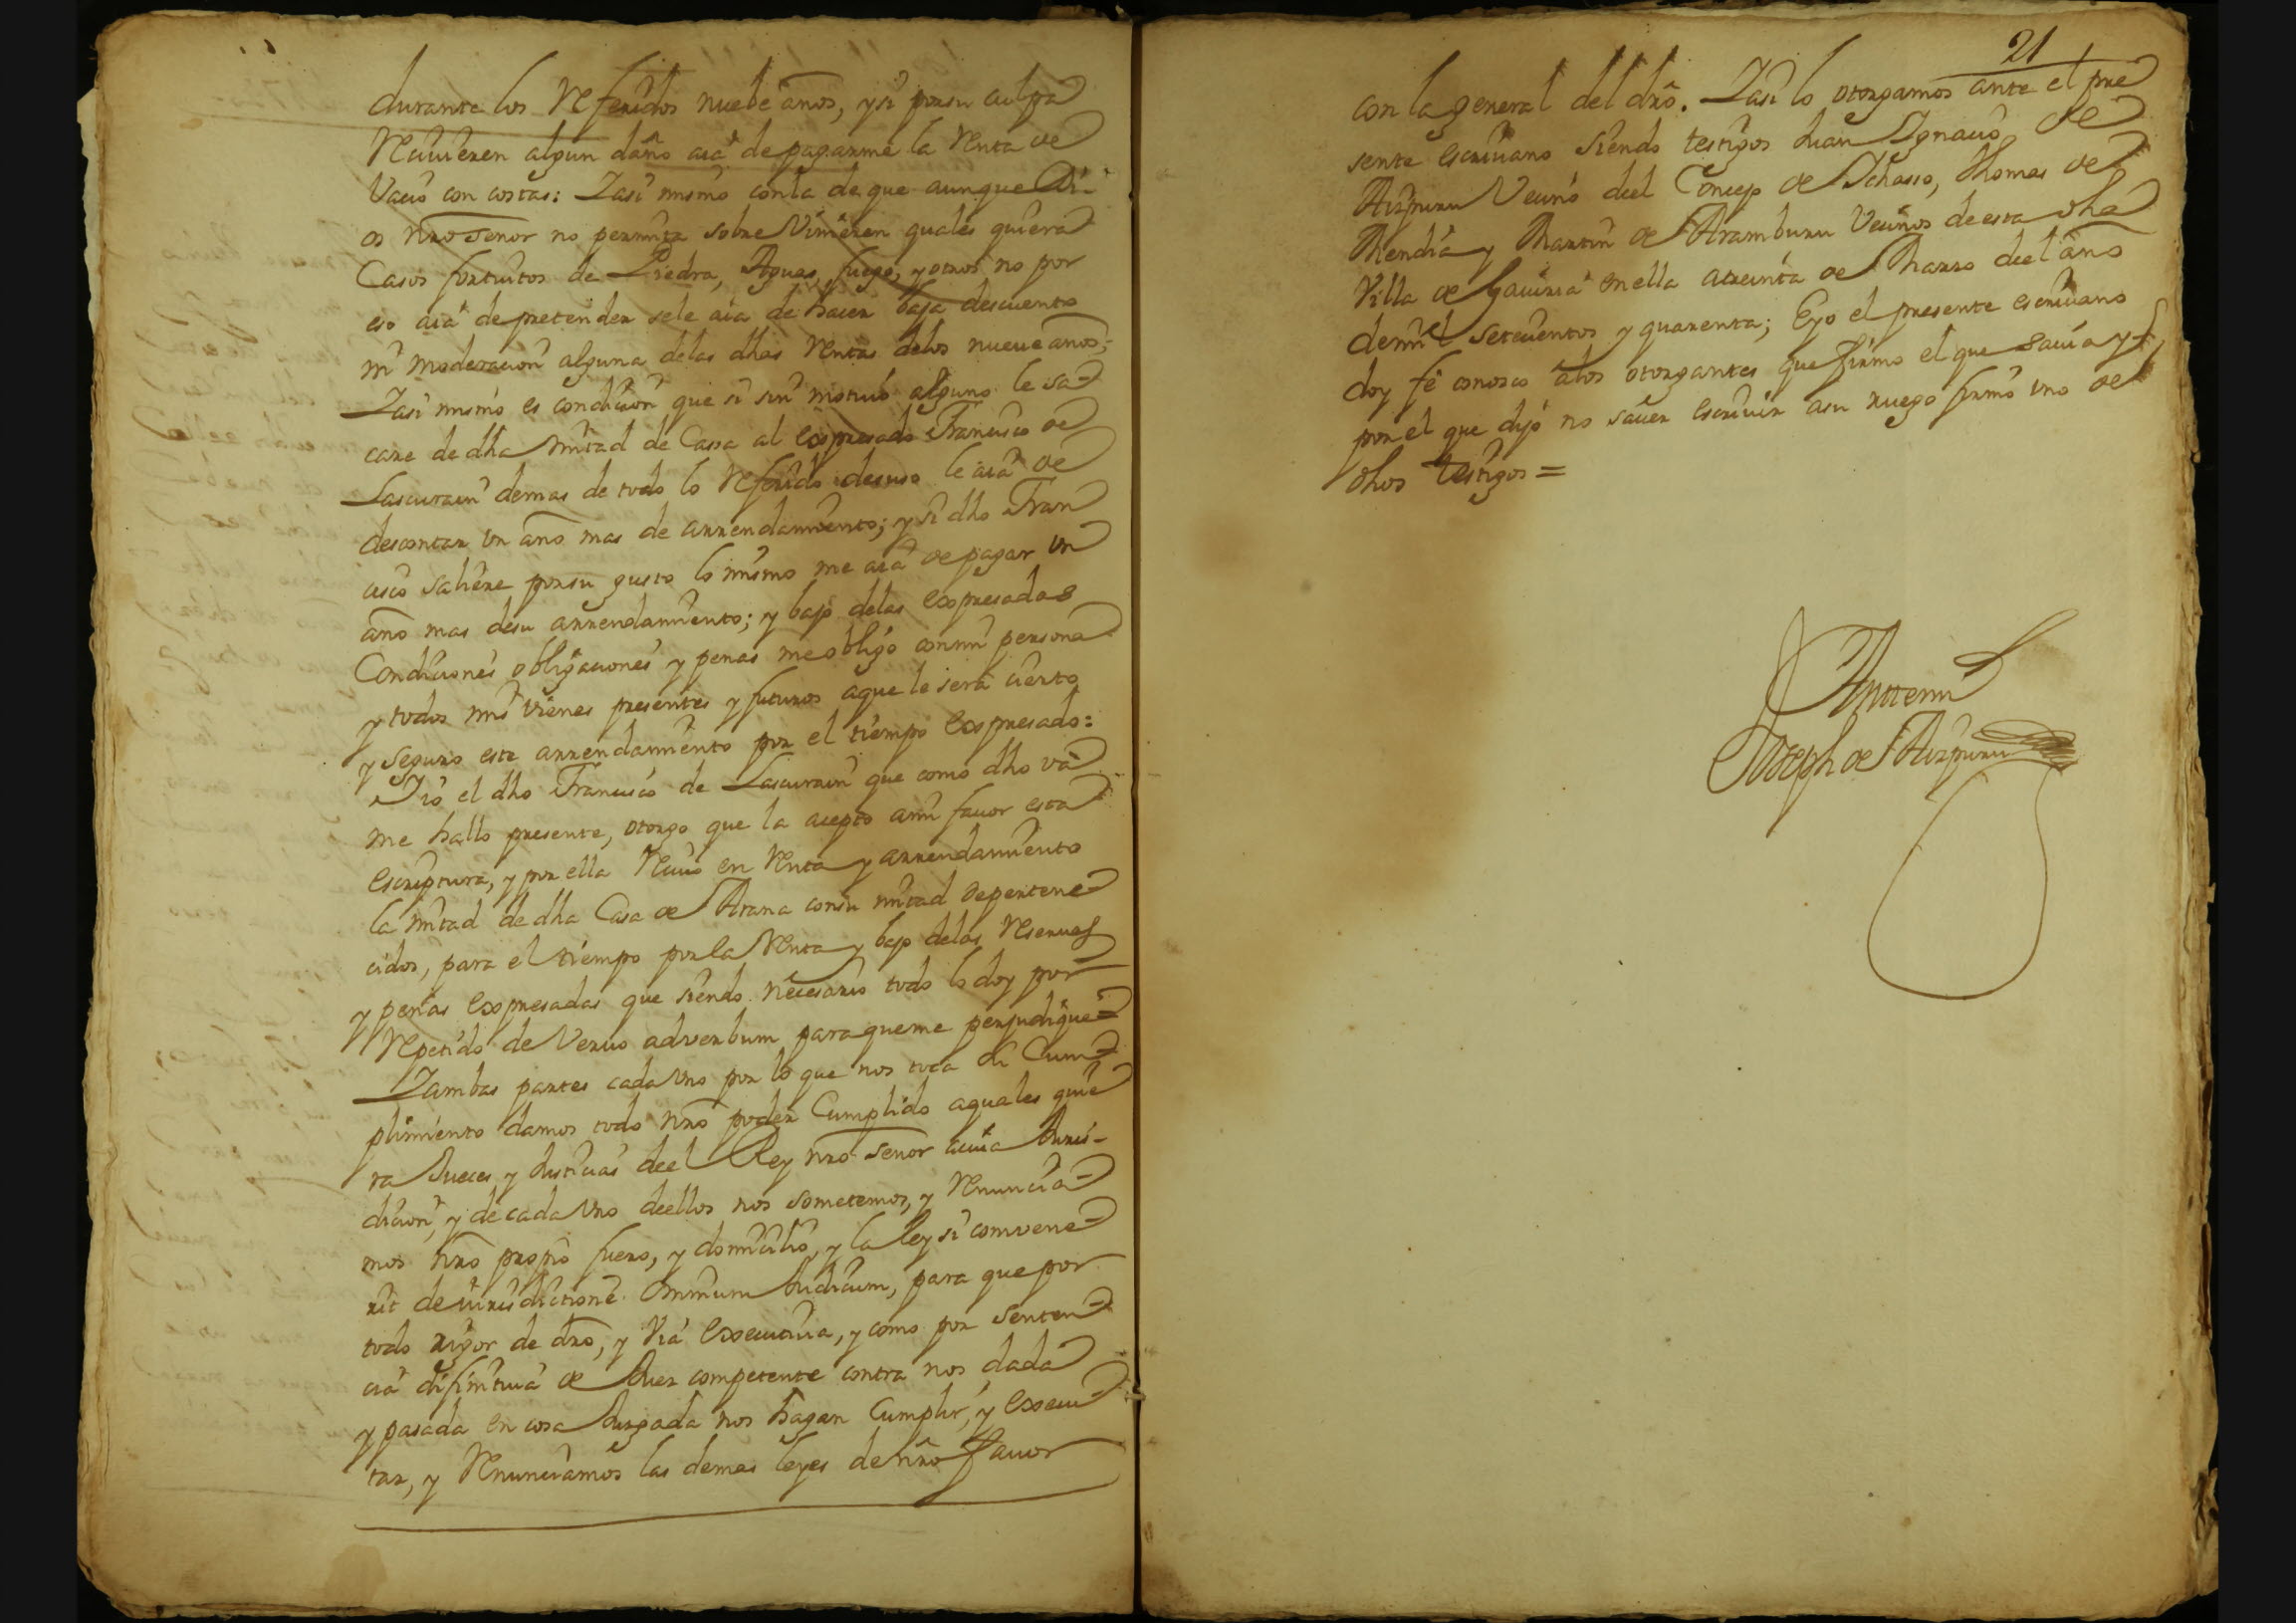 durante los Referidos nuebe años, y si por su culpa
Reciuieren algun daño aia de pagarme la Renta de
Vacio con costas: Y asi mismo con la de que aunque Di-
os nro Señor no permita sobre Vinieren quales quiera
Casos fortuitos de Piedra, Aguas, fuego, y otros no por
eso aia de pretender se le aia de hacer baja descuento
ni moderacion alguna de las dhas Rentas de los nueue años;
Y asi mismo es condicion que si sin motiuo alguno le sa-
care de dha mitad de Cassa al expresado Francisco de
Lascurain demas de todo lo Referido de suso le aia de
descontar vn año mas de arrendamiento; y si dho Fran
cisco saliere por su gusto lo mismo me aia de pagar vn
año mas de su arrendamiento; y bajo de las expresadas
Condiciones obligaciones y penas me obligo con mi persona
y todos mis vienes presentes y futuros a que le sera cierto
y seguro este arrendamiento por el tiempo expresado:
Yo el dho Francisco de Lascurain que como dho va
me hallo presente, otorgo que la acepto a mi fauor esta
escriptura, y por ella Reciuo en Renta y arrendamiento
la mitad de dha Casa de Arana con su mitad de pertene-
cidos, para el tiempo por la Renta y bajo de las Reseruas
y penas expresadas que siendo necesario todo lo doy por
Repetido de Veruo aduerbum para que me perjudique=
Y ambas partes cada vno por lo que nos toca di Cum-
plimiento damos todo nro poder Cumplido a quales quie
ra Jueces y Justicias deel Rey nro Señor a cuia Juris-
dicion, y de cada vno deellos nos sometemos, y Renuncia-
mos nro propio fuero, y domicilio, y la ley si comvene-
rit de iurisdictione Omnium Iudicum, para que por
todo rigor de dro, y Via executiua, y como por senten-
cia difinitiua de Juez competente contra nos dada
y pasada en cosa Juzgada nos hagan Cumplir, y execu-
tar, y Renunciamos las demas leyes de nro fauor
21
con la general del dro. Y asi lo otorgamos ante el pre
sente escriuano siendo testigos Juan Ignacio de
Aizpuru Vecino deel Concejo de Ichasso, Thomas de
Mendia y Martin de Aramburu Vecinos de esta dha
Villa de Gauiria en ella a treinta de Marzo deel año
de mil setecientos y quarenta; E yo el presente escriuano
doy fe conosco a los otorgantes que firmo el que sauia y
por el que dijo no sauer escriuir a su ruego firmó vno de
dhos testigos =
Antemi
Joseph de Aizpuru